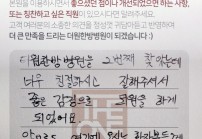 본원을 이용하시면서 좋으셨던 점이나 개선되었으면 하는 사항,
또는 칭찬하고 싶은 직원이 있으시면 말씀해주세요.
고객 여러분의 소중한 의견을
더 큰 만족을 드리는 더원한방병원이 되겠습니다 :)
더원한방병원을 2번째 찾았는데
너무 친절하시고 잘해주셔서
좋은 감정으로 퇴원을 하게
되었어요